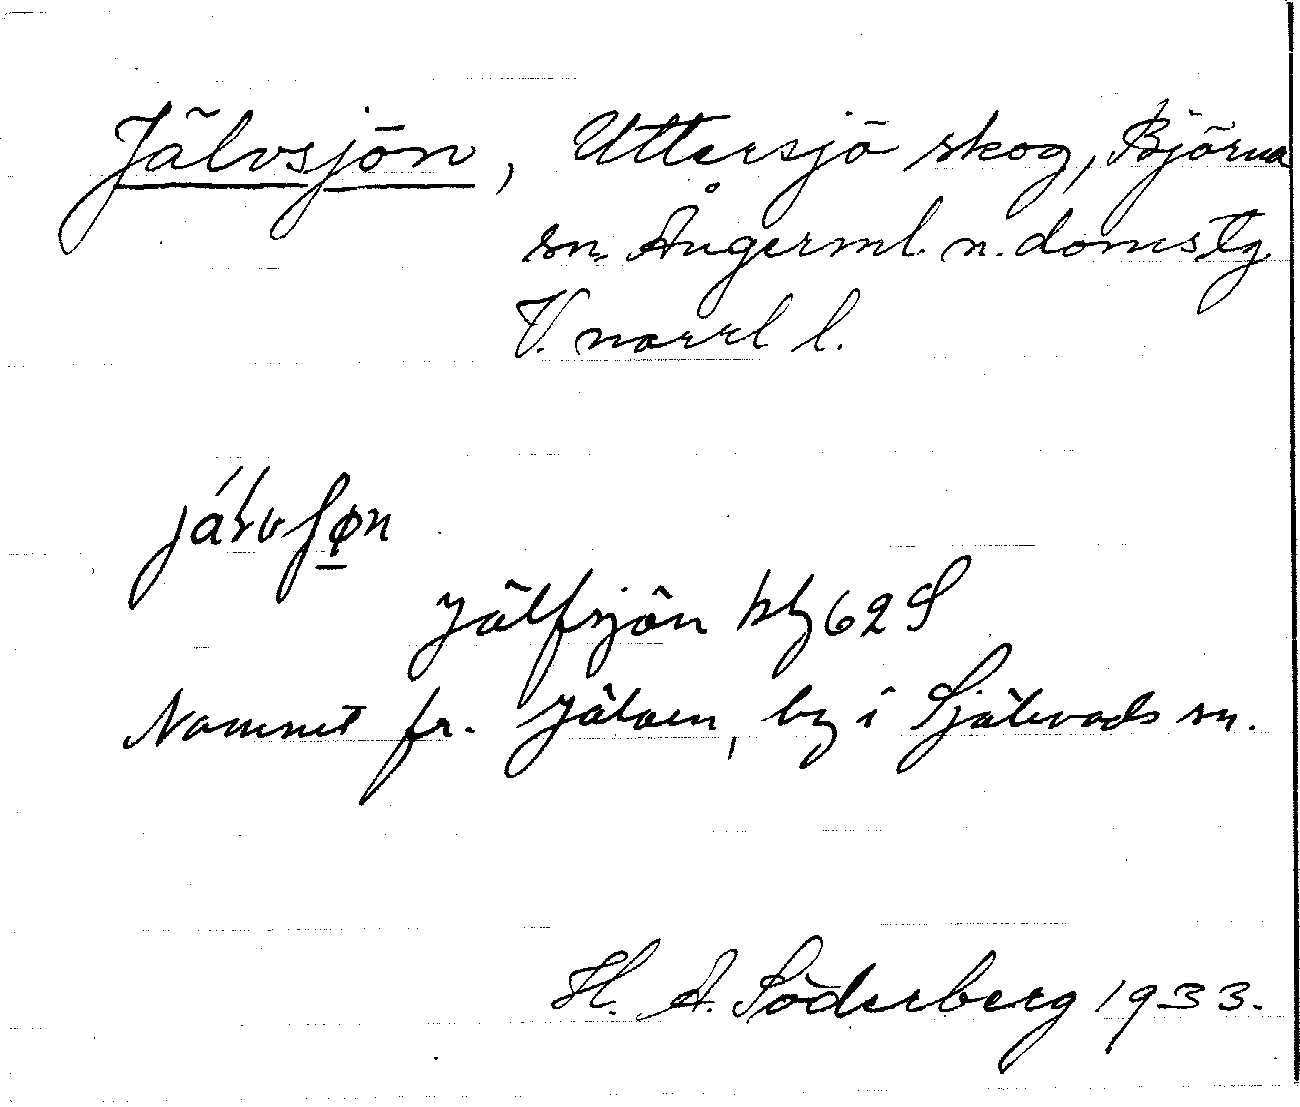 Jälvsjön, Uttersjö skog, Björna
sn. Ångerml. n. domstg
V. norrl l.
Jälfsjön kbl 62 S
Namnet fr. Jälven, by i Själevads sn.
H. A. Söderberg 1933.